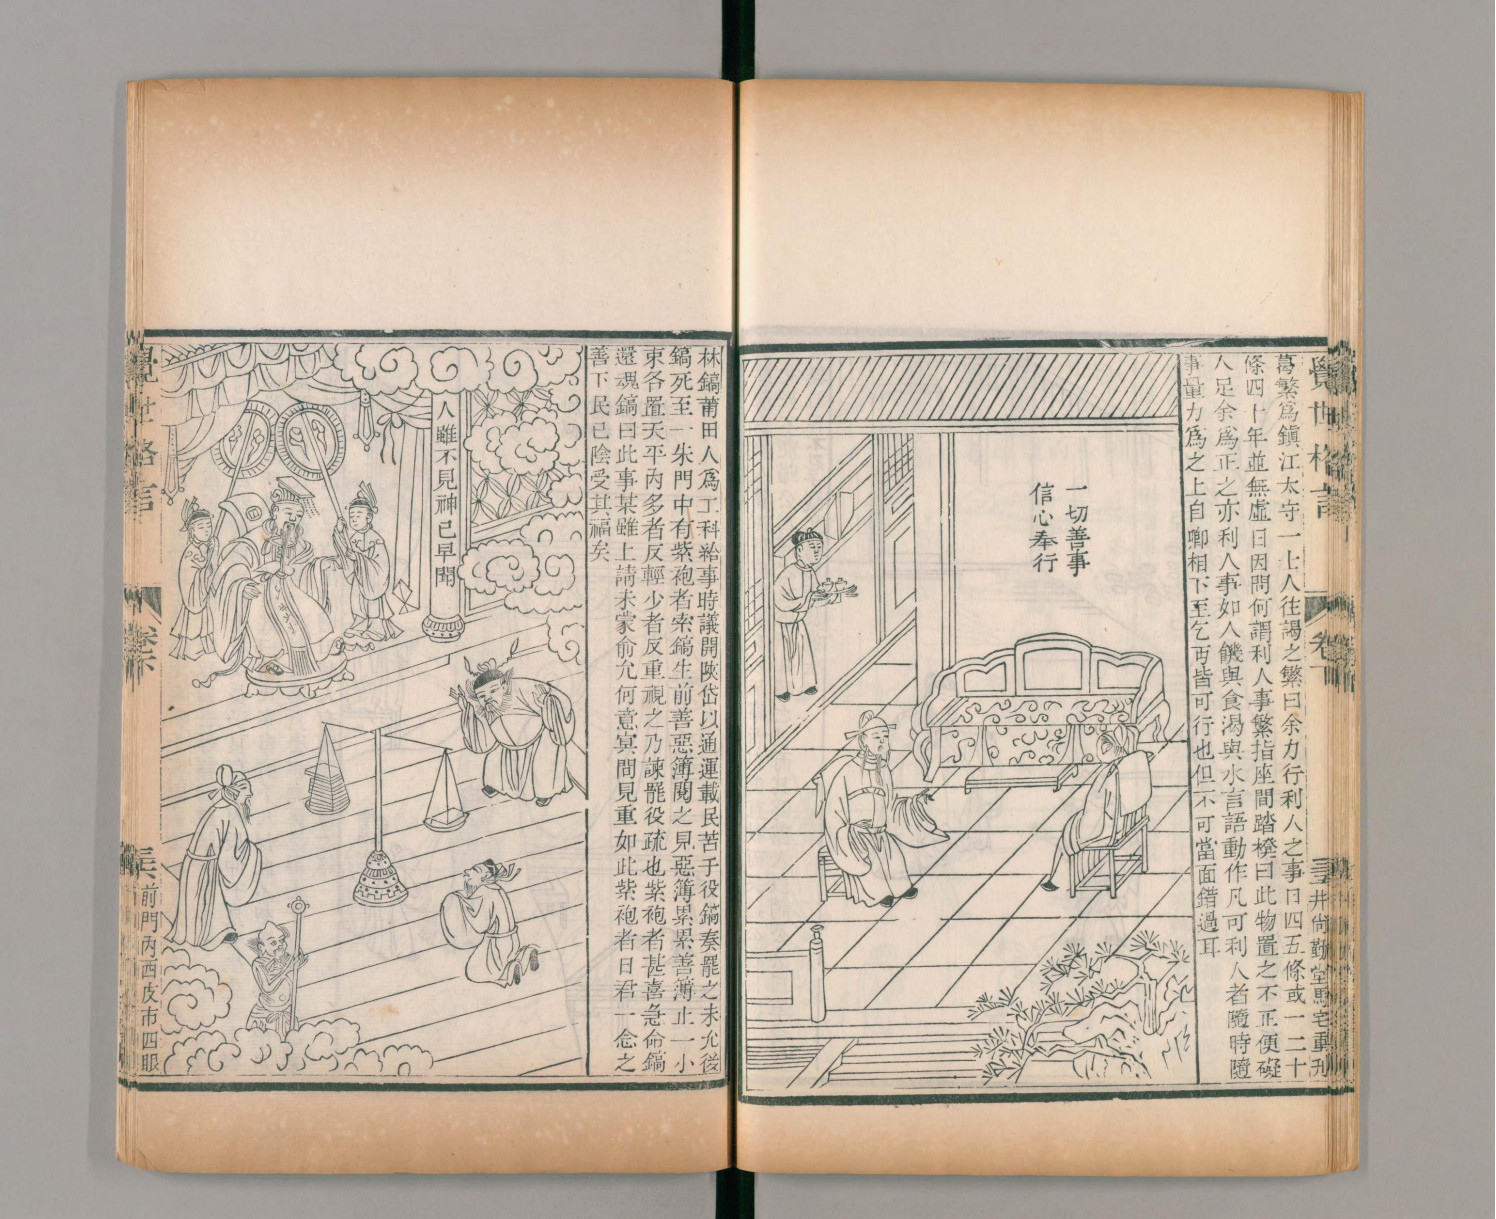 葛繁爲鎭江太守一士人往謁之繁曰余力行利人之事日四五條或一二十
條四十年並無虛日因問何謂利人事繁指座間踏櫈曰此物置之不正便礙
人足余爲正之亦利人事如人饑與食渴與水言語動作凡可利人者隨時隨
事量力爲之上自卿相下至乞丐皆可行也但不可當面錯過耳
一切善事
信心奉行
林鎬莆田人爲工科給事時議開陝岱以通運載民苦于役鎬奏罷之未允後
鎬死至一朱門中有紫袍者索鎬生前善惡簿閱之見惡簿累累善簿止一小
束各置天平內多者反輕少者反重視之乃諫罷役疏也紫袍者甚喜急命鎬
還魂鎬曰此事某雖上請未蒙俞允何意冥間見重如此紫袍者曰君一念之
善下民已陰受其福矣
人雖不見神已早聞
覺世格言
卷下
前門內西皮市四眼
覺世格言
卷下
井尙勤堂馬宅重刋